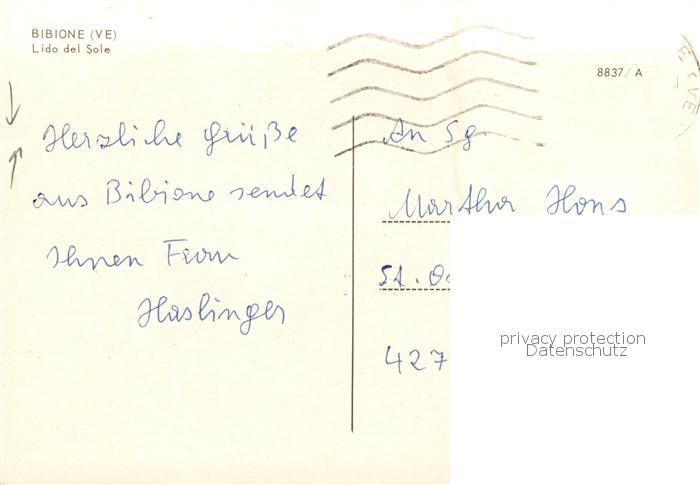 BIBIONE (VE)
Lido del Sole
8837/A
Herzliche Grüße
aus Bibione sendet
Ihnen Frau
Haslinger
An Sg.
Martha Hons
St. O
427
privacy protection
Datenschutz